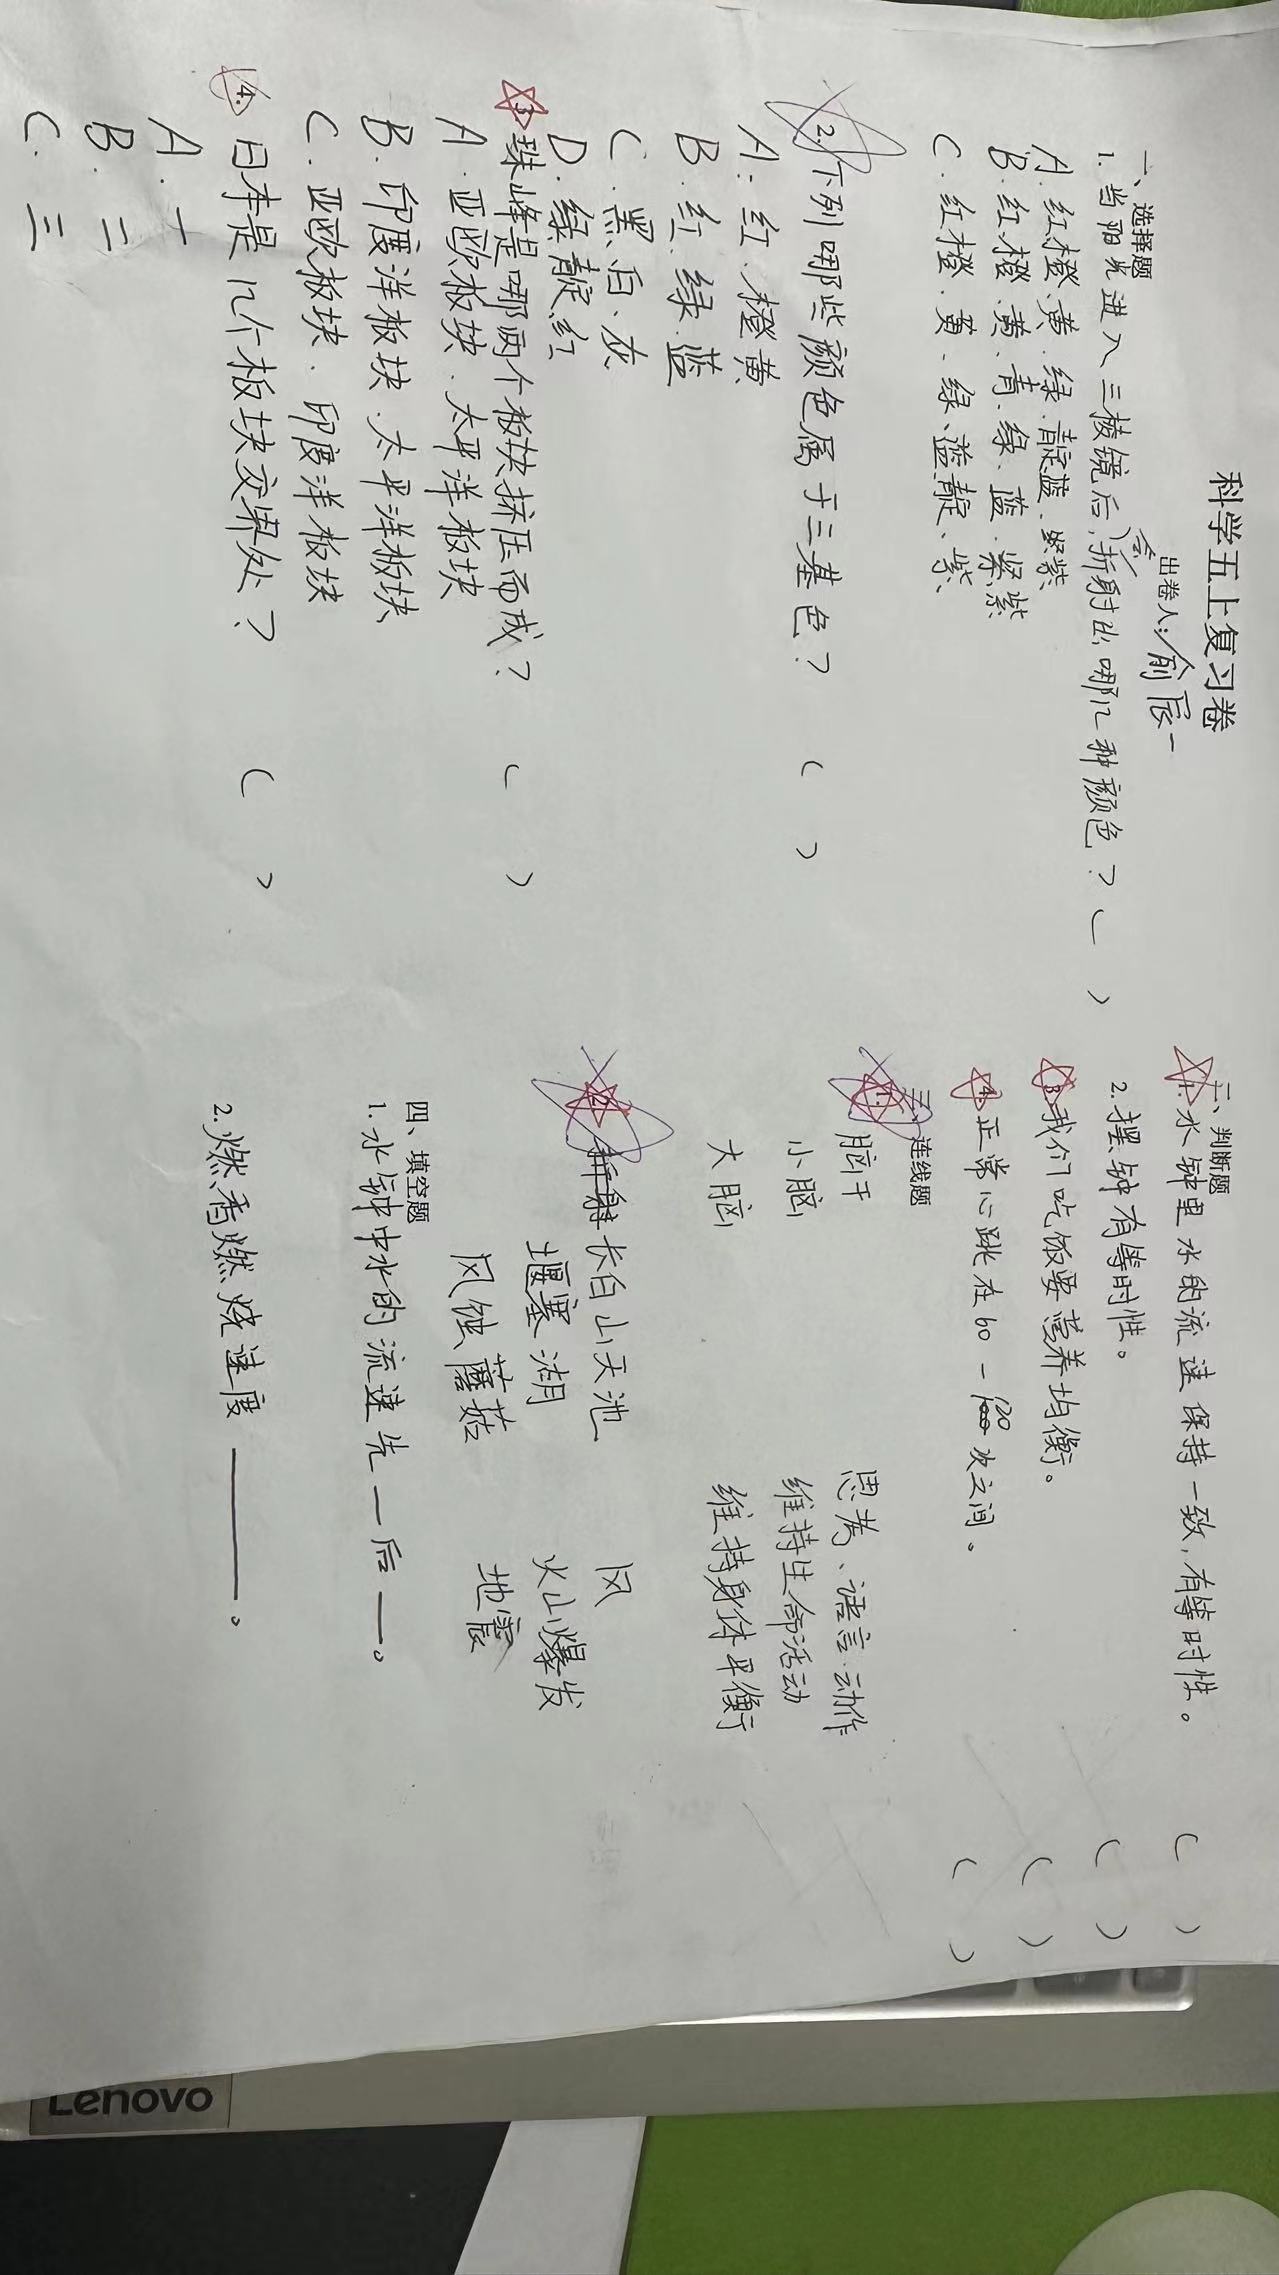 科学五上复习卷
出卷人：俞辰一
一、选择题
1. 当阳光进入三棱镜后，会折射出哪几种颜色？（ ）
A. 红橙、黄、绿、靛蓝、紫
B. 红、橙、黄、青、绿、蓝、紫、
C. 红橙、黄、绿、蓝靛、紫、
2. 下列哪些颜色属于三基色？（ ）
A: 红、橙黄
B. 红、绿、蓝
C. 黑、白、灰
D. 绿靛、红
3. 珠峰是哪两个板块挤压而成？（ ）
A. 亚欧板块、太平洋板块
B. 印度洋板块、太平洋板块
C. 亚欧板块、印度洋板块
4. 日本是几个板块交界处？（ ）
A. 一
B. 二
C. 三
二、判断题
1. 水钟里水的流速保持一致，有等时性。（ ）
2. 摆钟有等时性。（ ）
3. 我们吃饭要营养均衡。（ ）
4. 正常心跳在60-120次之间。（ ）
三、连线题
1. 脑干 思考、语言、动作
小脑 维持生命活动
大脑 维持身体平衡
2. 长白山天池 风
堰塞湖 火山爆发
风蚀蘑菇 地震
四、填空题
1. 水钟中水的流速先__后__。
2. 燃香燃烧速度______。
Lenovo